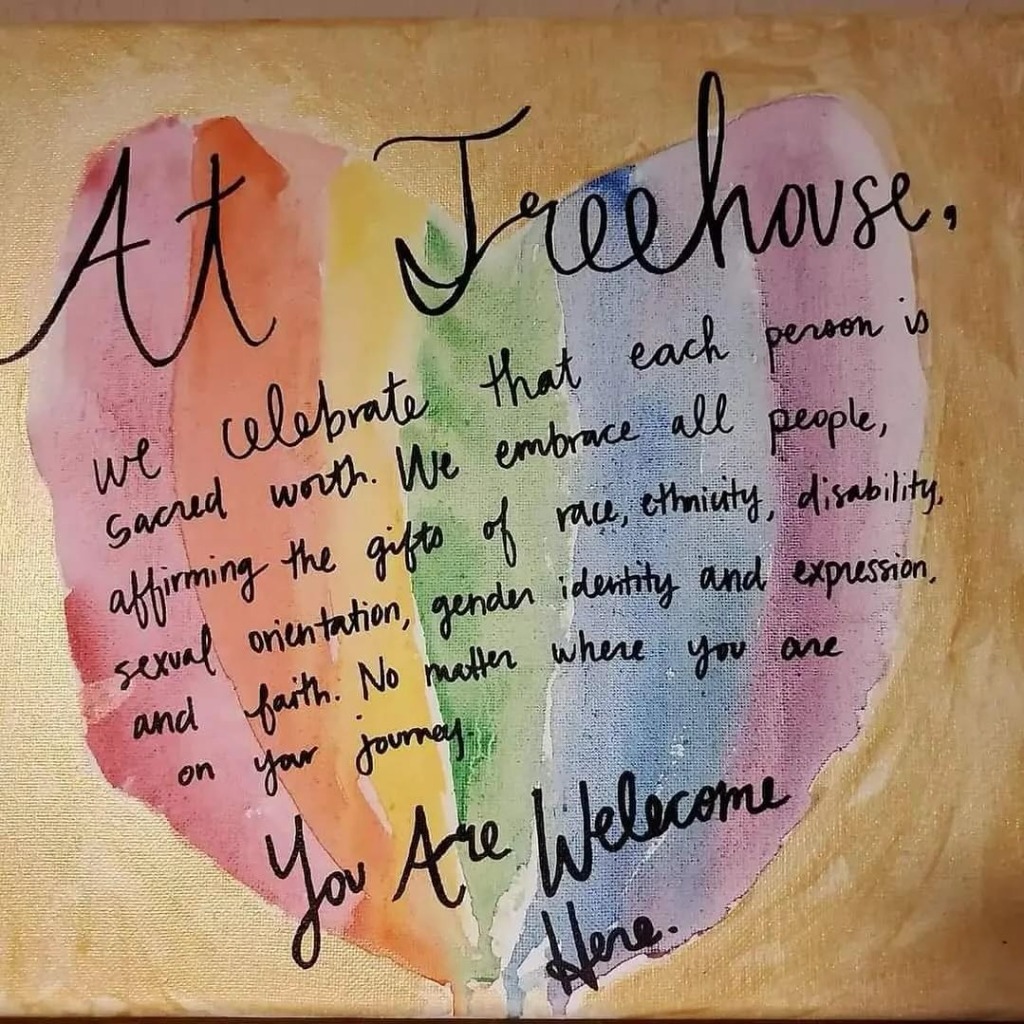 At Treehouse,
we celebrate that each person is
sacred worth. We embrace all people,
affirming the gifts of race, ethnicity, disability,
sexual orientation, gender identity and expression,
and faith. No matter where you are
on your journey.
You Are Welecome
Here.